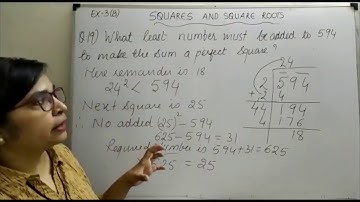 EX-3(B)
SQUARES AND SQUARE ROOTS
Q19) What least number must be added to 594
to make the sum a perfect square?
Here remainder is 18
24² < 594
Next square is 25
∴ No added (25)² - 594
625 - 594 = 31
Required number is 594+31=625
625 = 25
24
2 594
+2 4
44 194
176
18